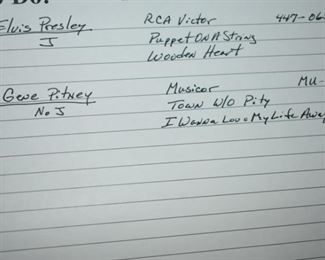 o Do:
Elvis Presley RCA Victor 447-06
J Puppet On A String
Wooden Heart
Gene Pitney Musicor MU-
No J Town W/O Pity
I Wanna Love My Life Away